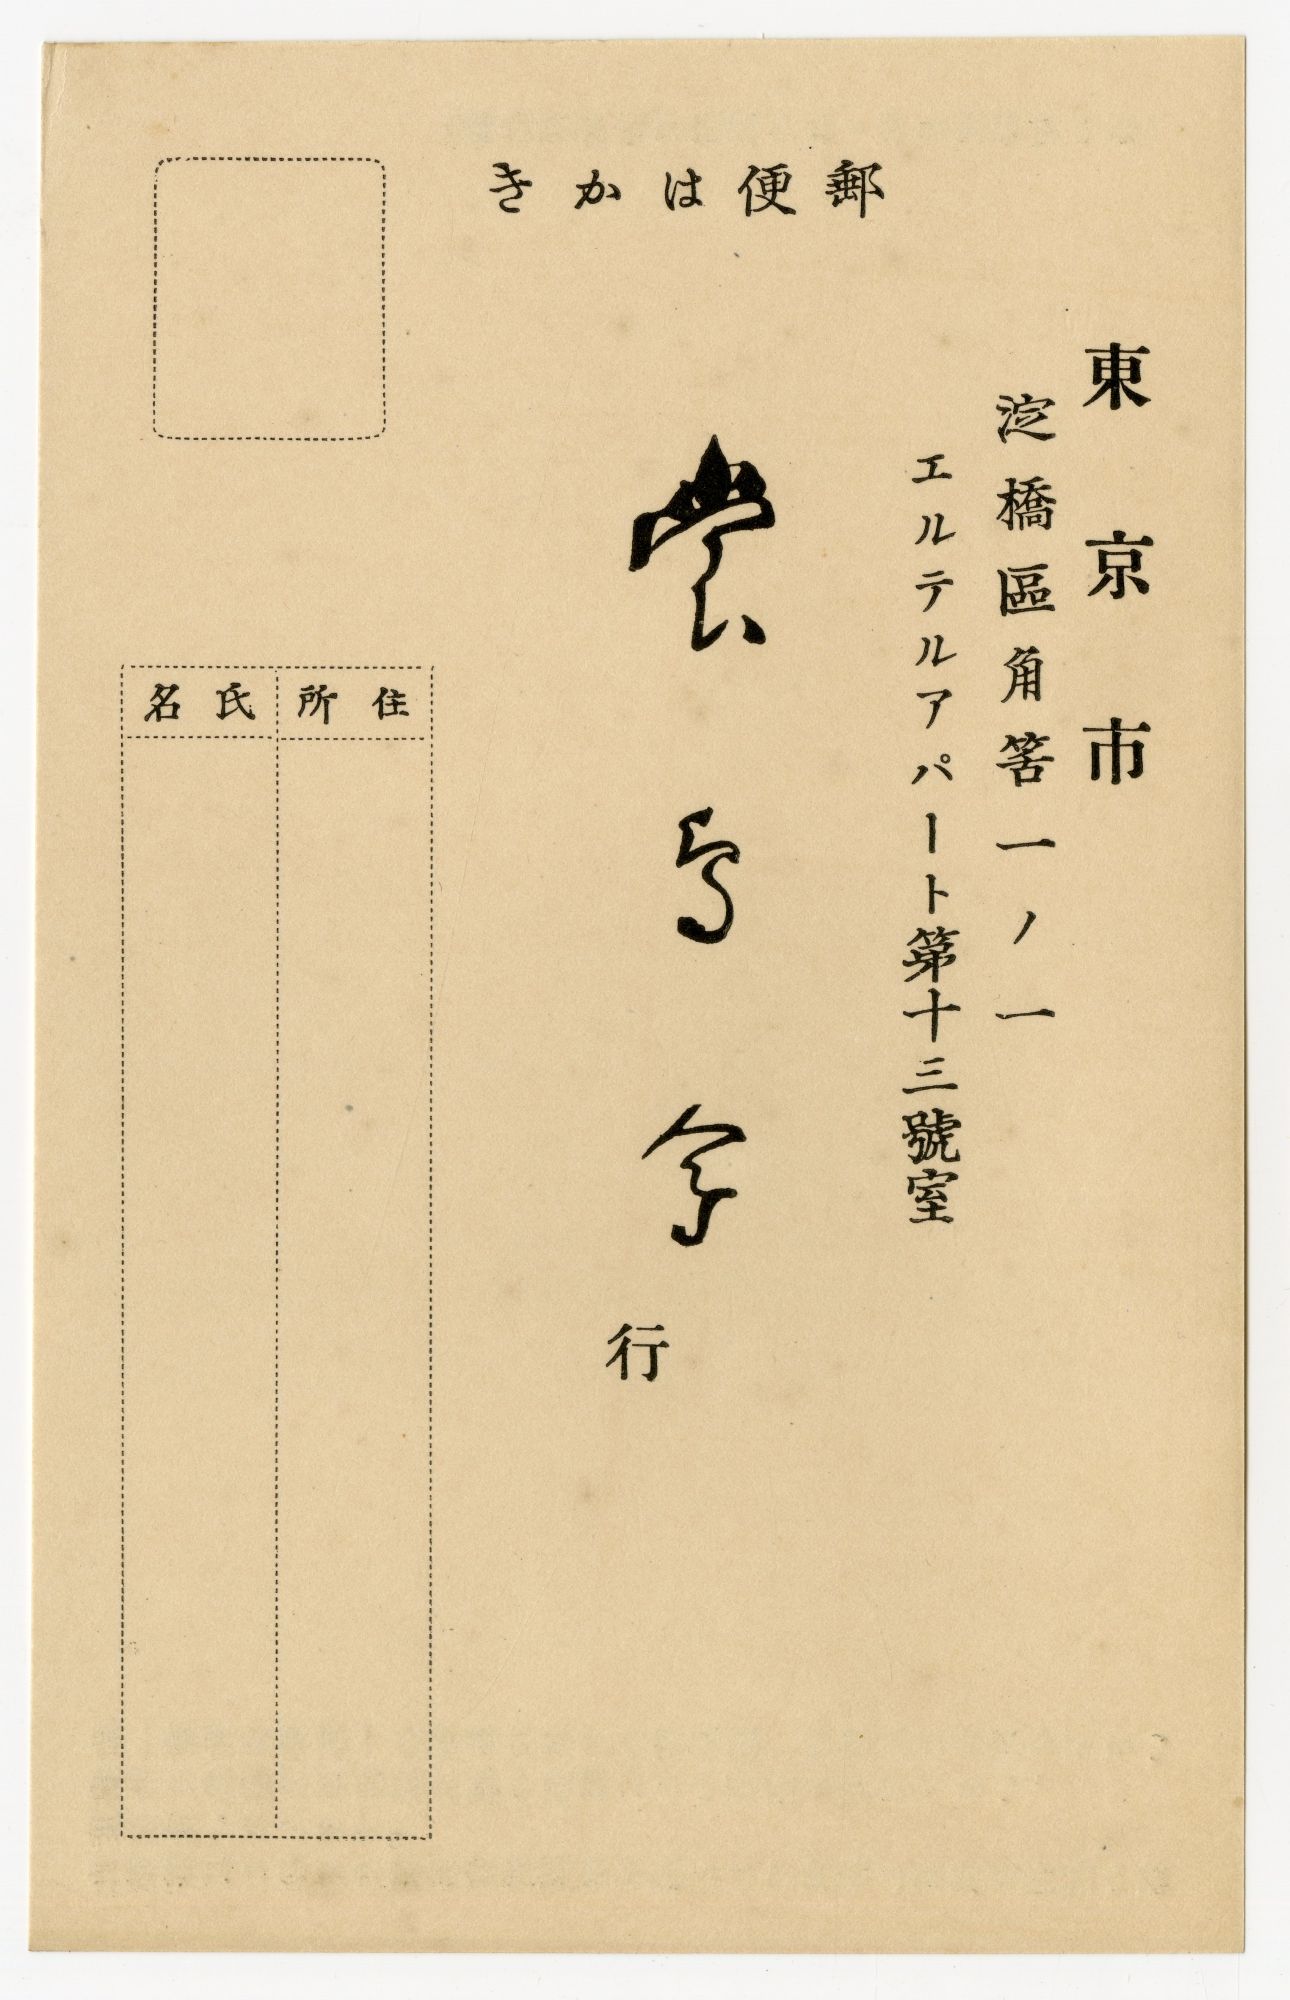 郵便はかき
東京市
淀橋區角筈一ノ一
エルテルアパート第十三號室
裳鳥会
行
住所
氏名